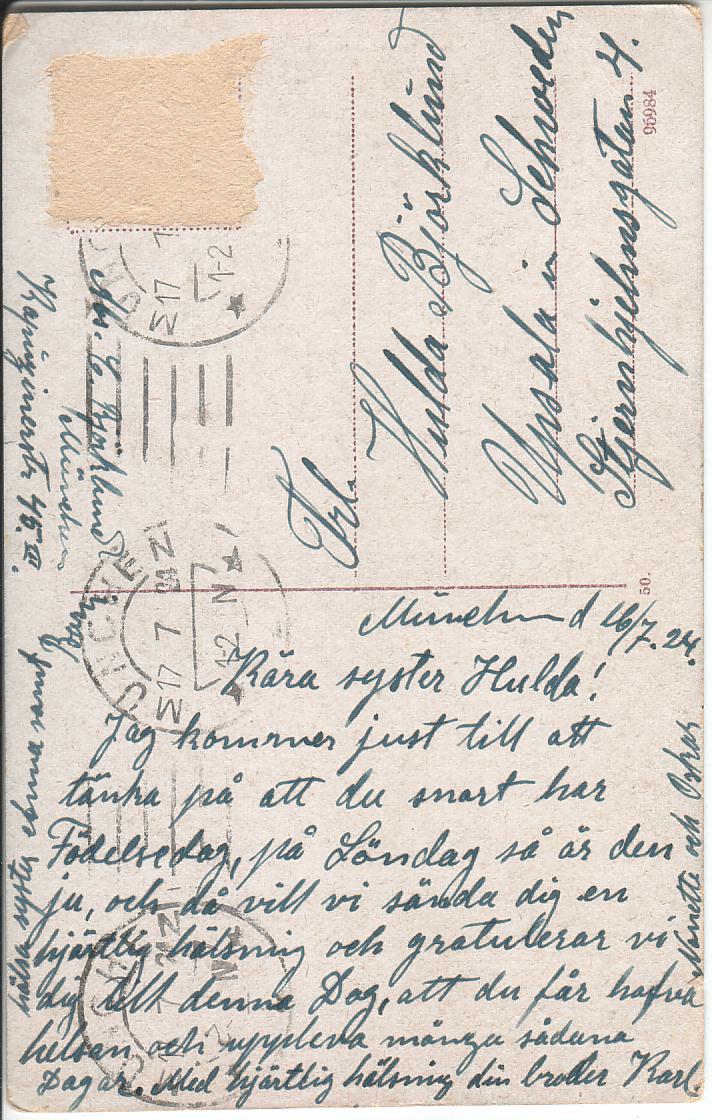 München d 16/7. 24.
Kära syster Hulda!
Jag kommer just till att
tänka på att du snart har
Födelsedag, på Söndag så är den
ju, och då vill vi sända dig en
hjärtlig hälsning och gratulerar vi
dig till denna Dag, att du får hafva
helsan och uppleva många sådana
Dagar. Med hjärtlig hälsning din broder Karl.
Nanette och Oskar
hälsa syster Emma samt
Frl.
Hulda Björklund
Upsala in Schweden
Stjernhjelmsgatan 4.
Björklund
München
45 III.
50.
95984
MÜNCHEN
17 7
1-2 N